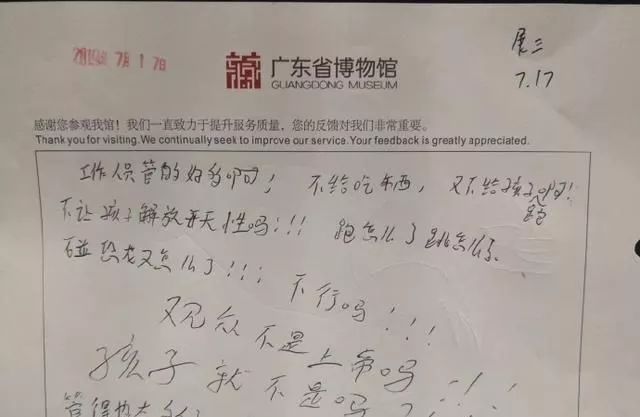 2019年 7月 17日
展三
7.17
广东省博物馆
GUANGDONG MUSEUM
感谢您参观我馆！我们一直致力于提升服务质量，您的反馈对我们非常重要。
Thank you for visiting. We continually seek to improve our service. Your feedback is greatly appreciated.
工作人员管的好多啊！ 不给吃东西， 又不给孩子跑啊！
不让孩子解放天性吗！！！ 跑怎么了跳怎么了
碰恐龙又怎么了！！！ 不行吗！！！
观众不是上帝吗！！
孩子就不是吗？！
管得也太多